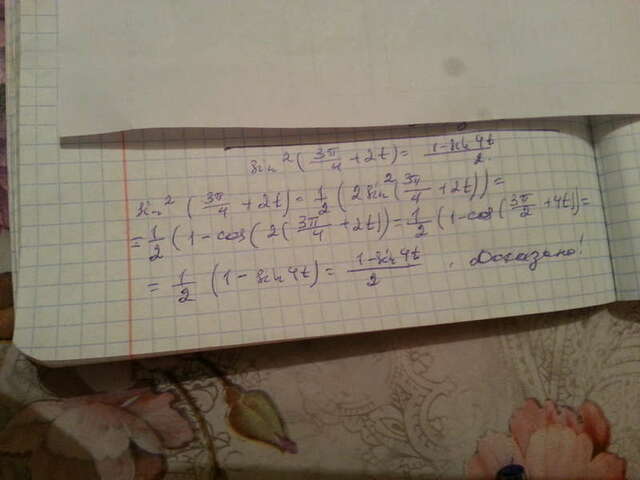 sin² (3π/4 + 2t) = (1 - sin 4t)/2.
sin² (3π/4 + 2t) = 1/2 (2 sin² (3π/4 + 2t)) =
= 1/2 (1 - cos (2 (3π/4 + 2t)) = 1/2 (1 - cos (3π/2 + 4t)) =
= 1/2 (1 - sin 4t) = (1 - sin 4t)/2. Доказано!